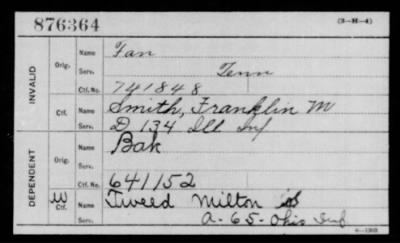 876364 (3-H-4)
INVALID
Orig. Name Fan
Serv. Tenn
Ctf. No. 741848
Ctf. Name Smith, Franklin M
Serv. D 134 Ill Inf
DEPENDENT
Orig. Name Bak
Serv.
Ctf. No. 641152
W Ctf. Name Tweed Milton
Serv. A-65-Ohio Inf